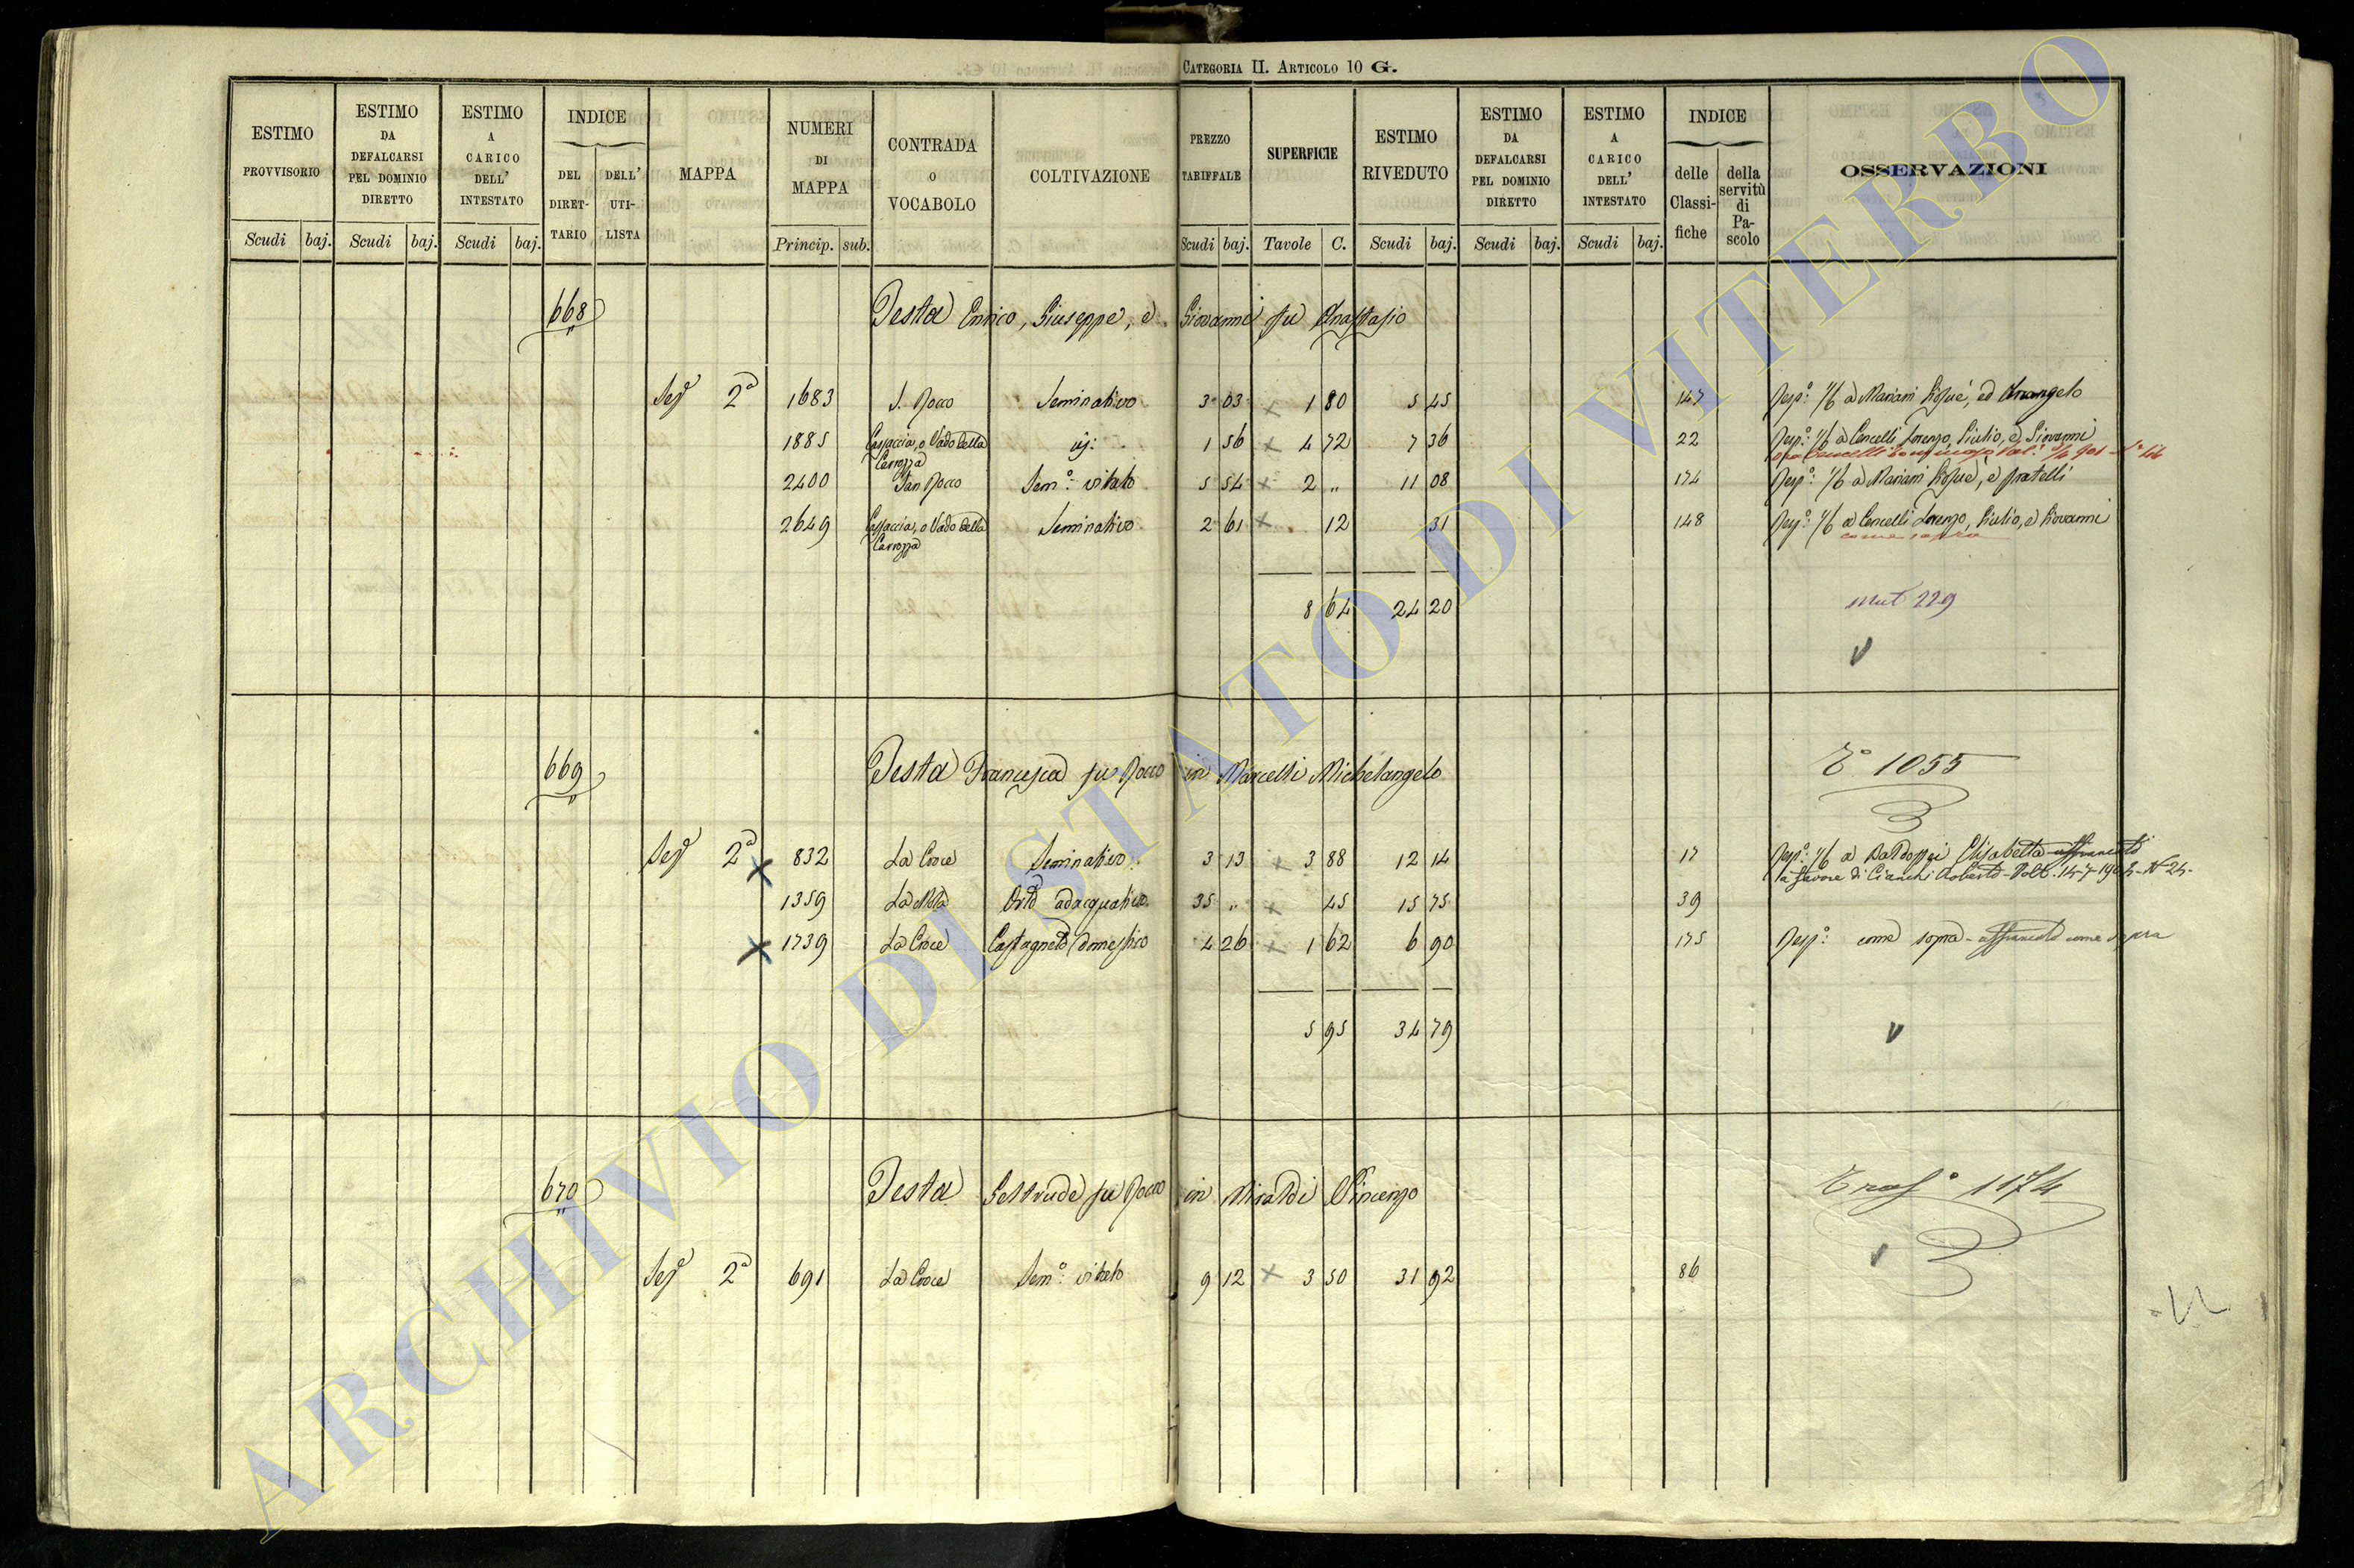 CATEGORIA II. ARTICOLO 10 G.
ESTIMO PROVVISORIO
ESTIMO DA DEFALCARSI PEL DOMINIO DIRETTO
ESTIMO A CARICO DELL' INTESTATO
INDICE
DEL DIRETTARIO
DELL' UTILISTA
MAPPA
NUMERI DI MAPPA
CONTRADA O VOCABOLO
COLTIVAZIONE
PREZZO TARIFFALE
SUPERFICIE
ESTIMO RIVEDUTO
ESTIMO DA DEFALCARSI PEL DOMINIO DIRETTO
ESTIMO A CARICO DELL' INTESTATO
INDICE
delle Classifiche
della servitù di Pascolo
OSSERVAZIONI
Scudi baj. Scudi baj. Scudi baj. Princip. sub. Scudi baj. Tavole C. Scudi baj. Scudi baj. Scudi baj.
668 Testa Enrico, Giuseppe, e Giovanni fu Anastasio
Sez 2a 1683 S. Rocco Seminativo 3 03 × 1 80 5 45 147 Resp: 1/6 a Mariani Giosuè, ed Arcangelo
1885 Casaccia, o Vado della Carrozza id: 1 56 × 4 72 7 36 22 Resp: 1/6 a Cencelli Lorenzo, Giulio, e Giovanni
2400 San Rocco Semo: vitato 5 54 × 2 „ 11 08 174 Resp: 1/6 a Mariani Giosuè, e fratelli
2649 Casaccia, o Vado della Carrozza Seminativo 2 61 × 12 31 148 Resp: 1/6 a Cencelli Lorenzo, Giulio, e Giovanni
come sopra
8 64 24 20 Mut 229
V
669 Testa Francesca fu Rocco in Marcelli Michelangelo To 1055
Sez 2a × 832 La Croce Seminativo 3 13 × 3 88 12 14 17 Resp: 1/6 a Baldozzi Elisabetta affrancato
a favore di Cianchi Roberto - Volt. 14-7-1904-N 24-
1359 La Mola Orto adacquativo 35 „ × 45 15 75 39
× 1739 La Croce Castagneto domestico 4 26 × 1 62 6 90 175 Resp: come sopra - affrancato come sopra
5 95 34 79 V
670 Testa Geltrude fu Rocco in Miraldi Vincenzo Traso 1174
Sez 2a 691 La Croce Semo: vitato 9 12 × 3 50 31 92 86
ARCHIVIO DI STATO DI VITERBO